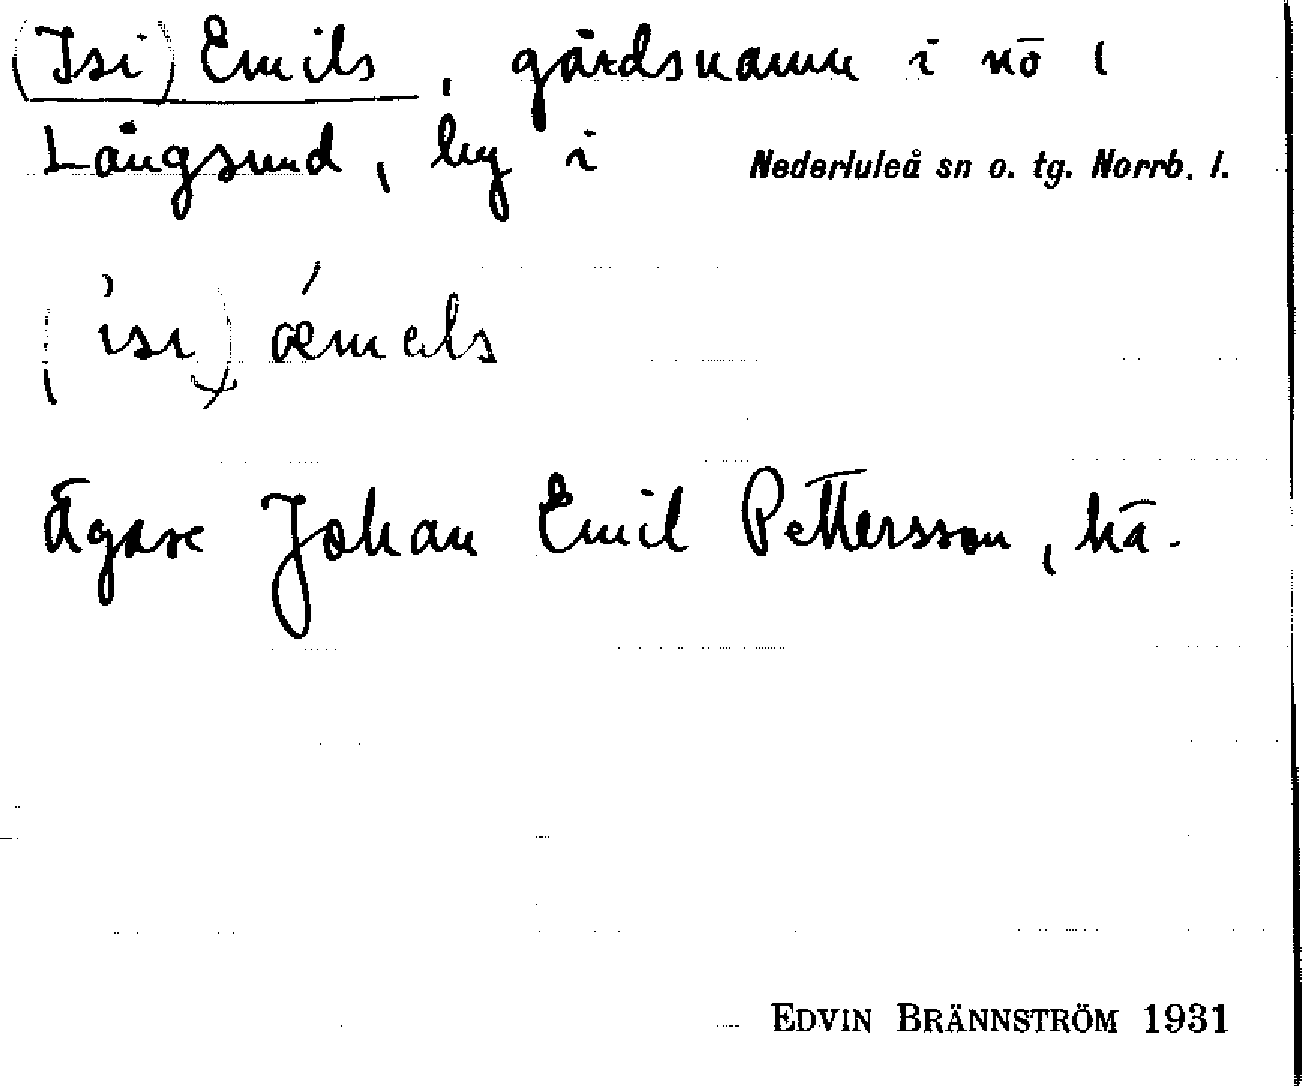 (Isi) Emils, gårdsnamn i nö 1
Långsund, by i Nederluleå sn o. tg. Norrb. l.
(ìsi) ǽmels
Ägare Johan Emil Pettersson, hä.
EDVIN BRÄNNSTRÖM 1931